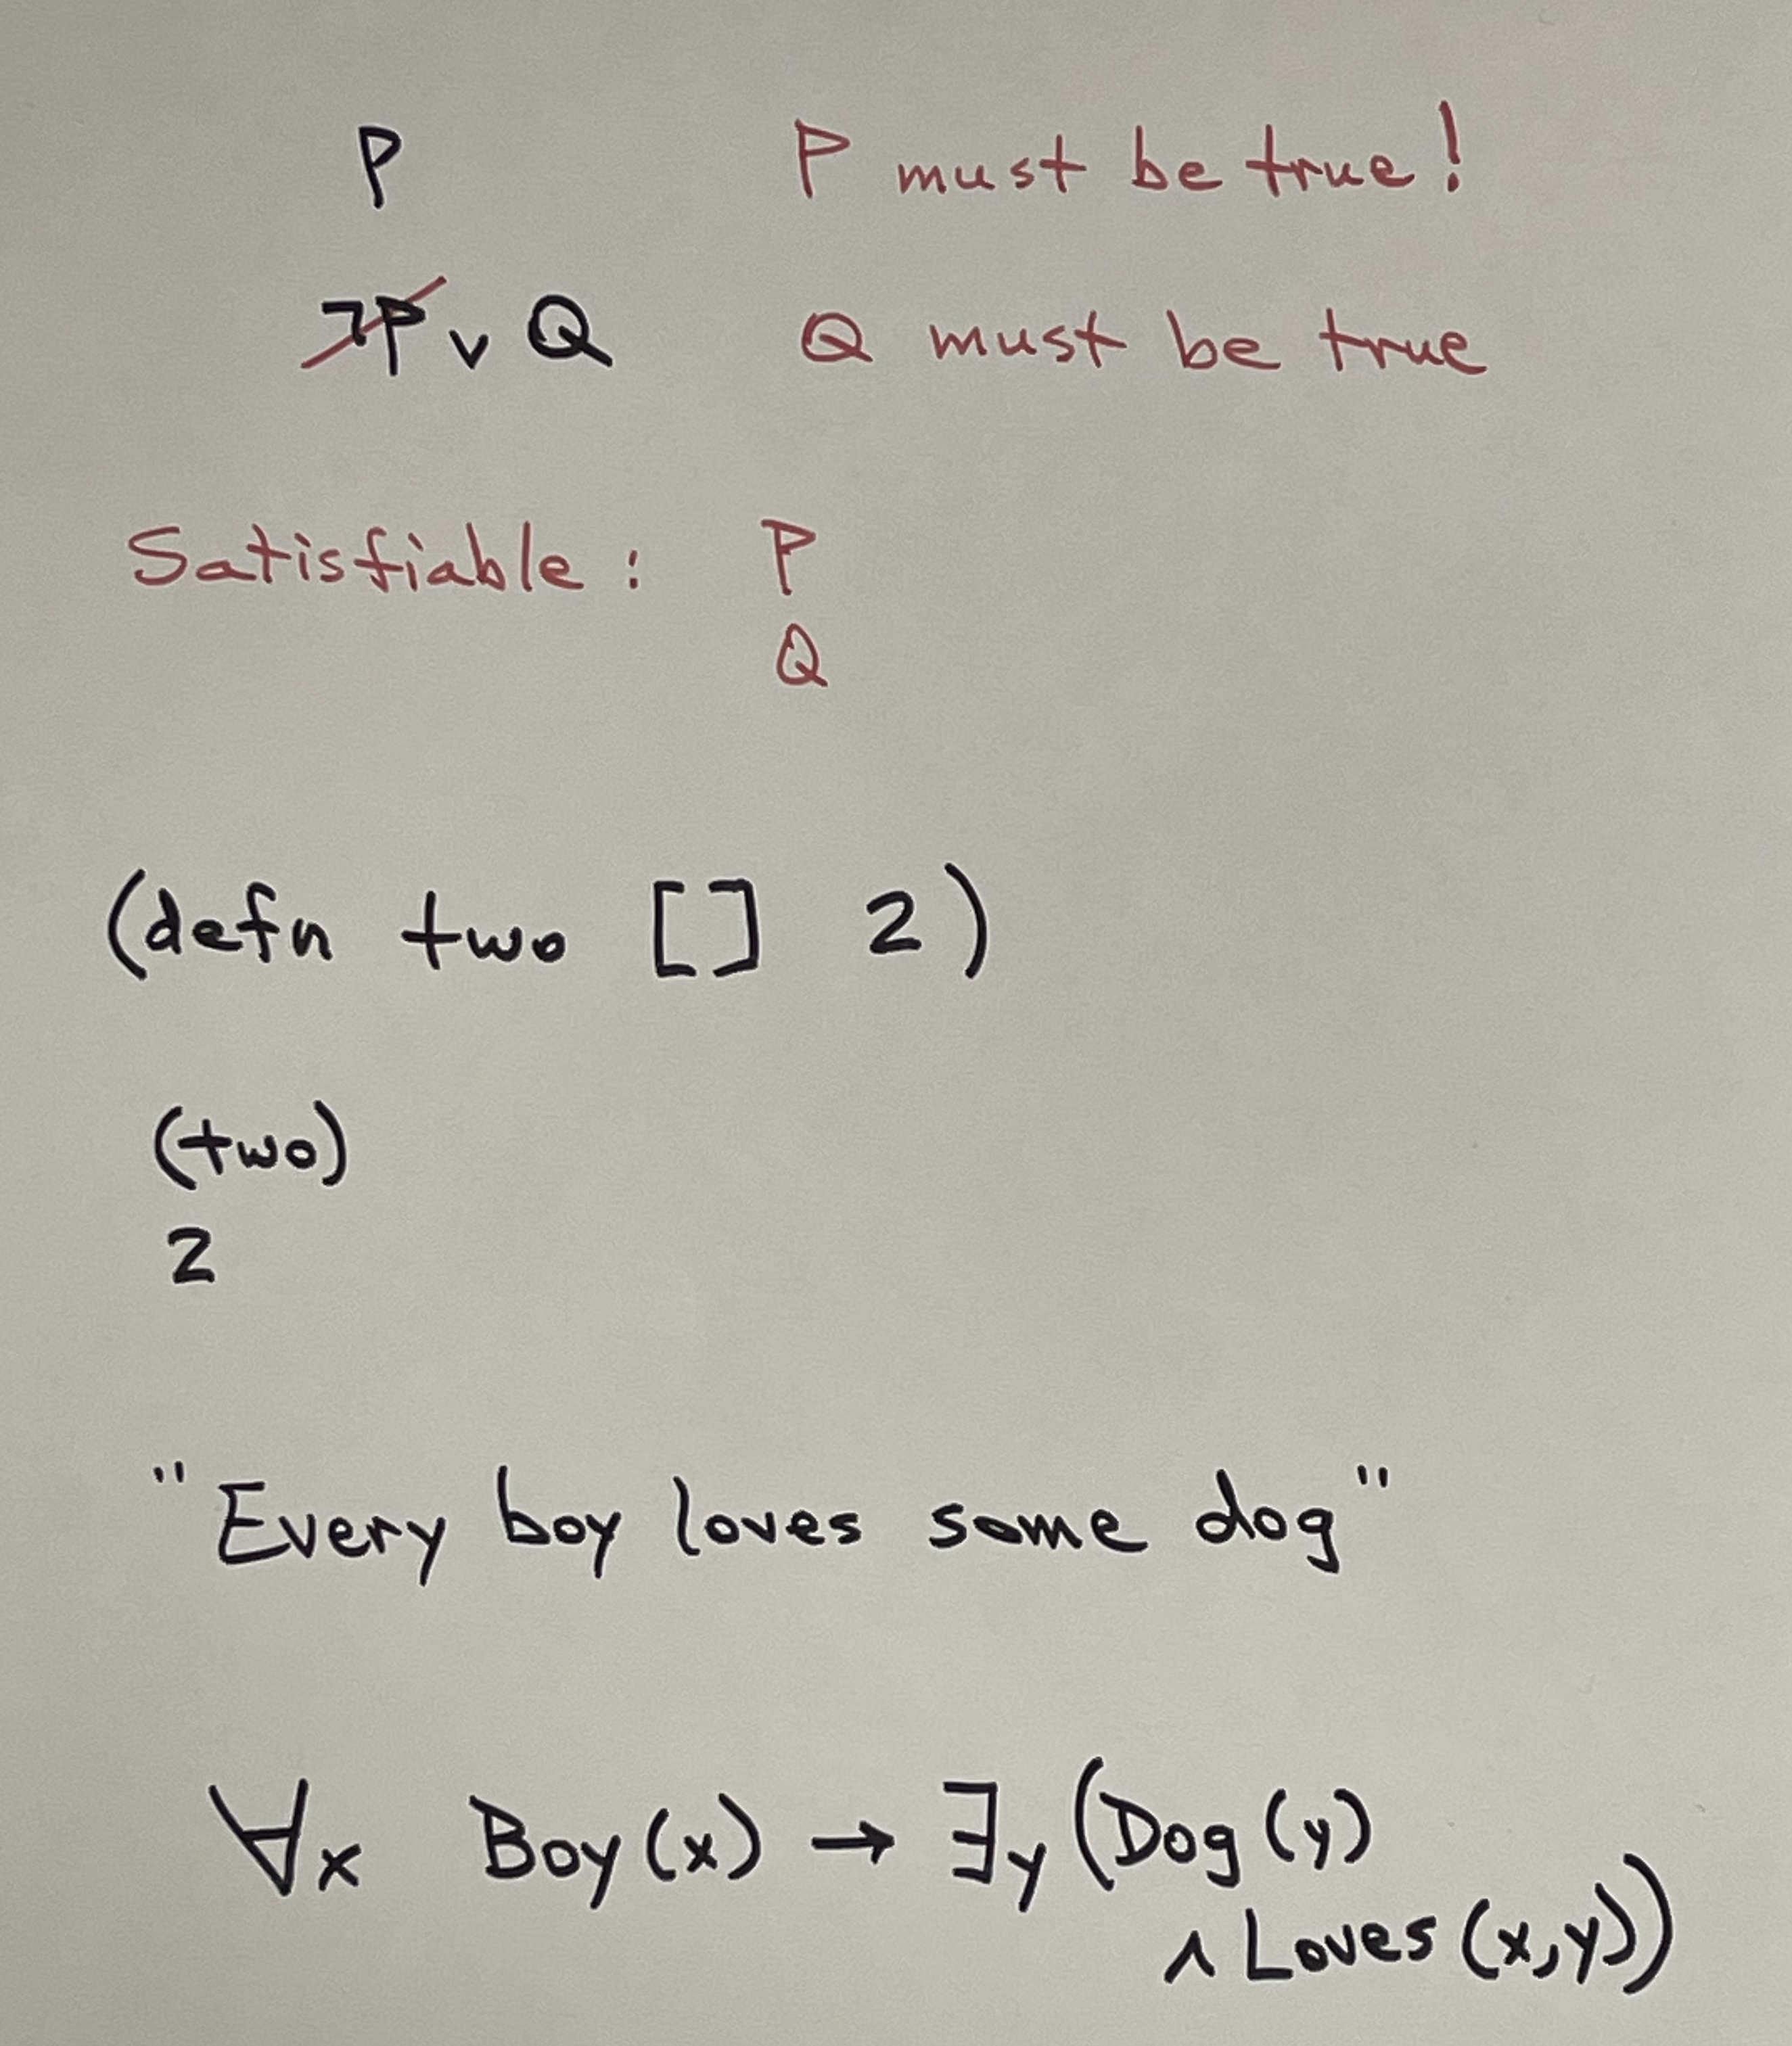 P P must be true!
¬P ∨ Q Q must be true
Satisfiable: P
Q
(defn two [] 2)
(two)
2
"Every boy loves some dog"
∀x Boy(x) → ∃y (Dog(y)
∧ Loves(x,y))